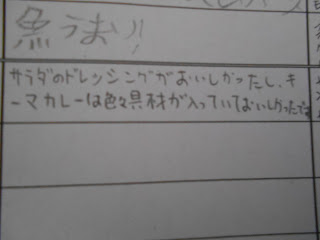 魚うまい!!
サラダのドレッシングがおいしかったし、キ
ーマカレーは色々具材が入っていておいしかったです